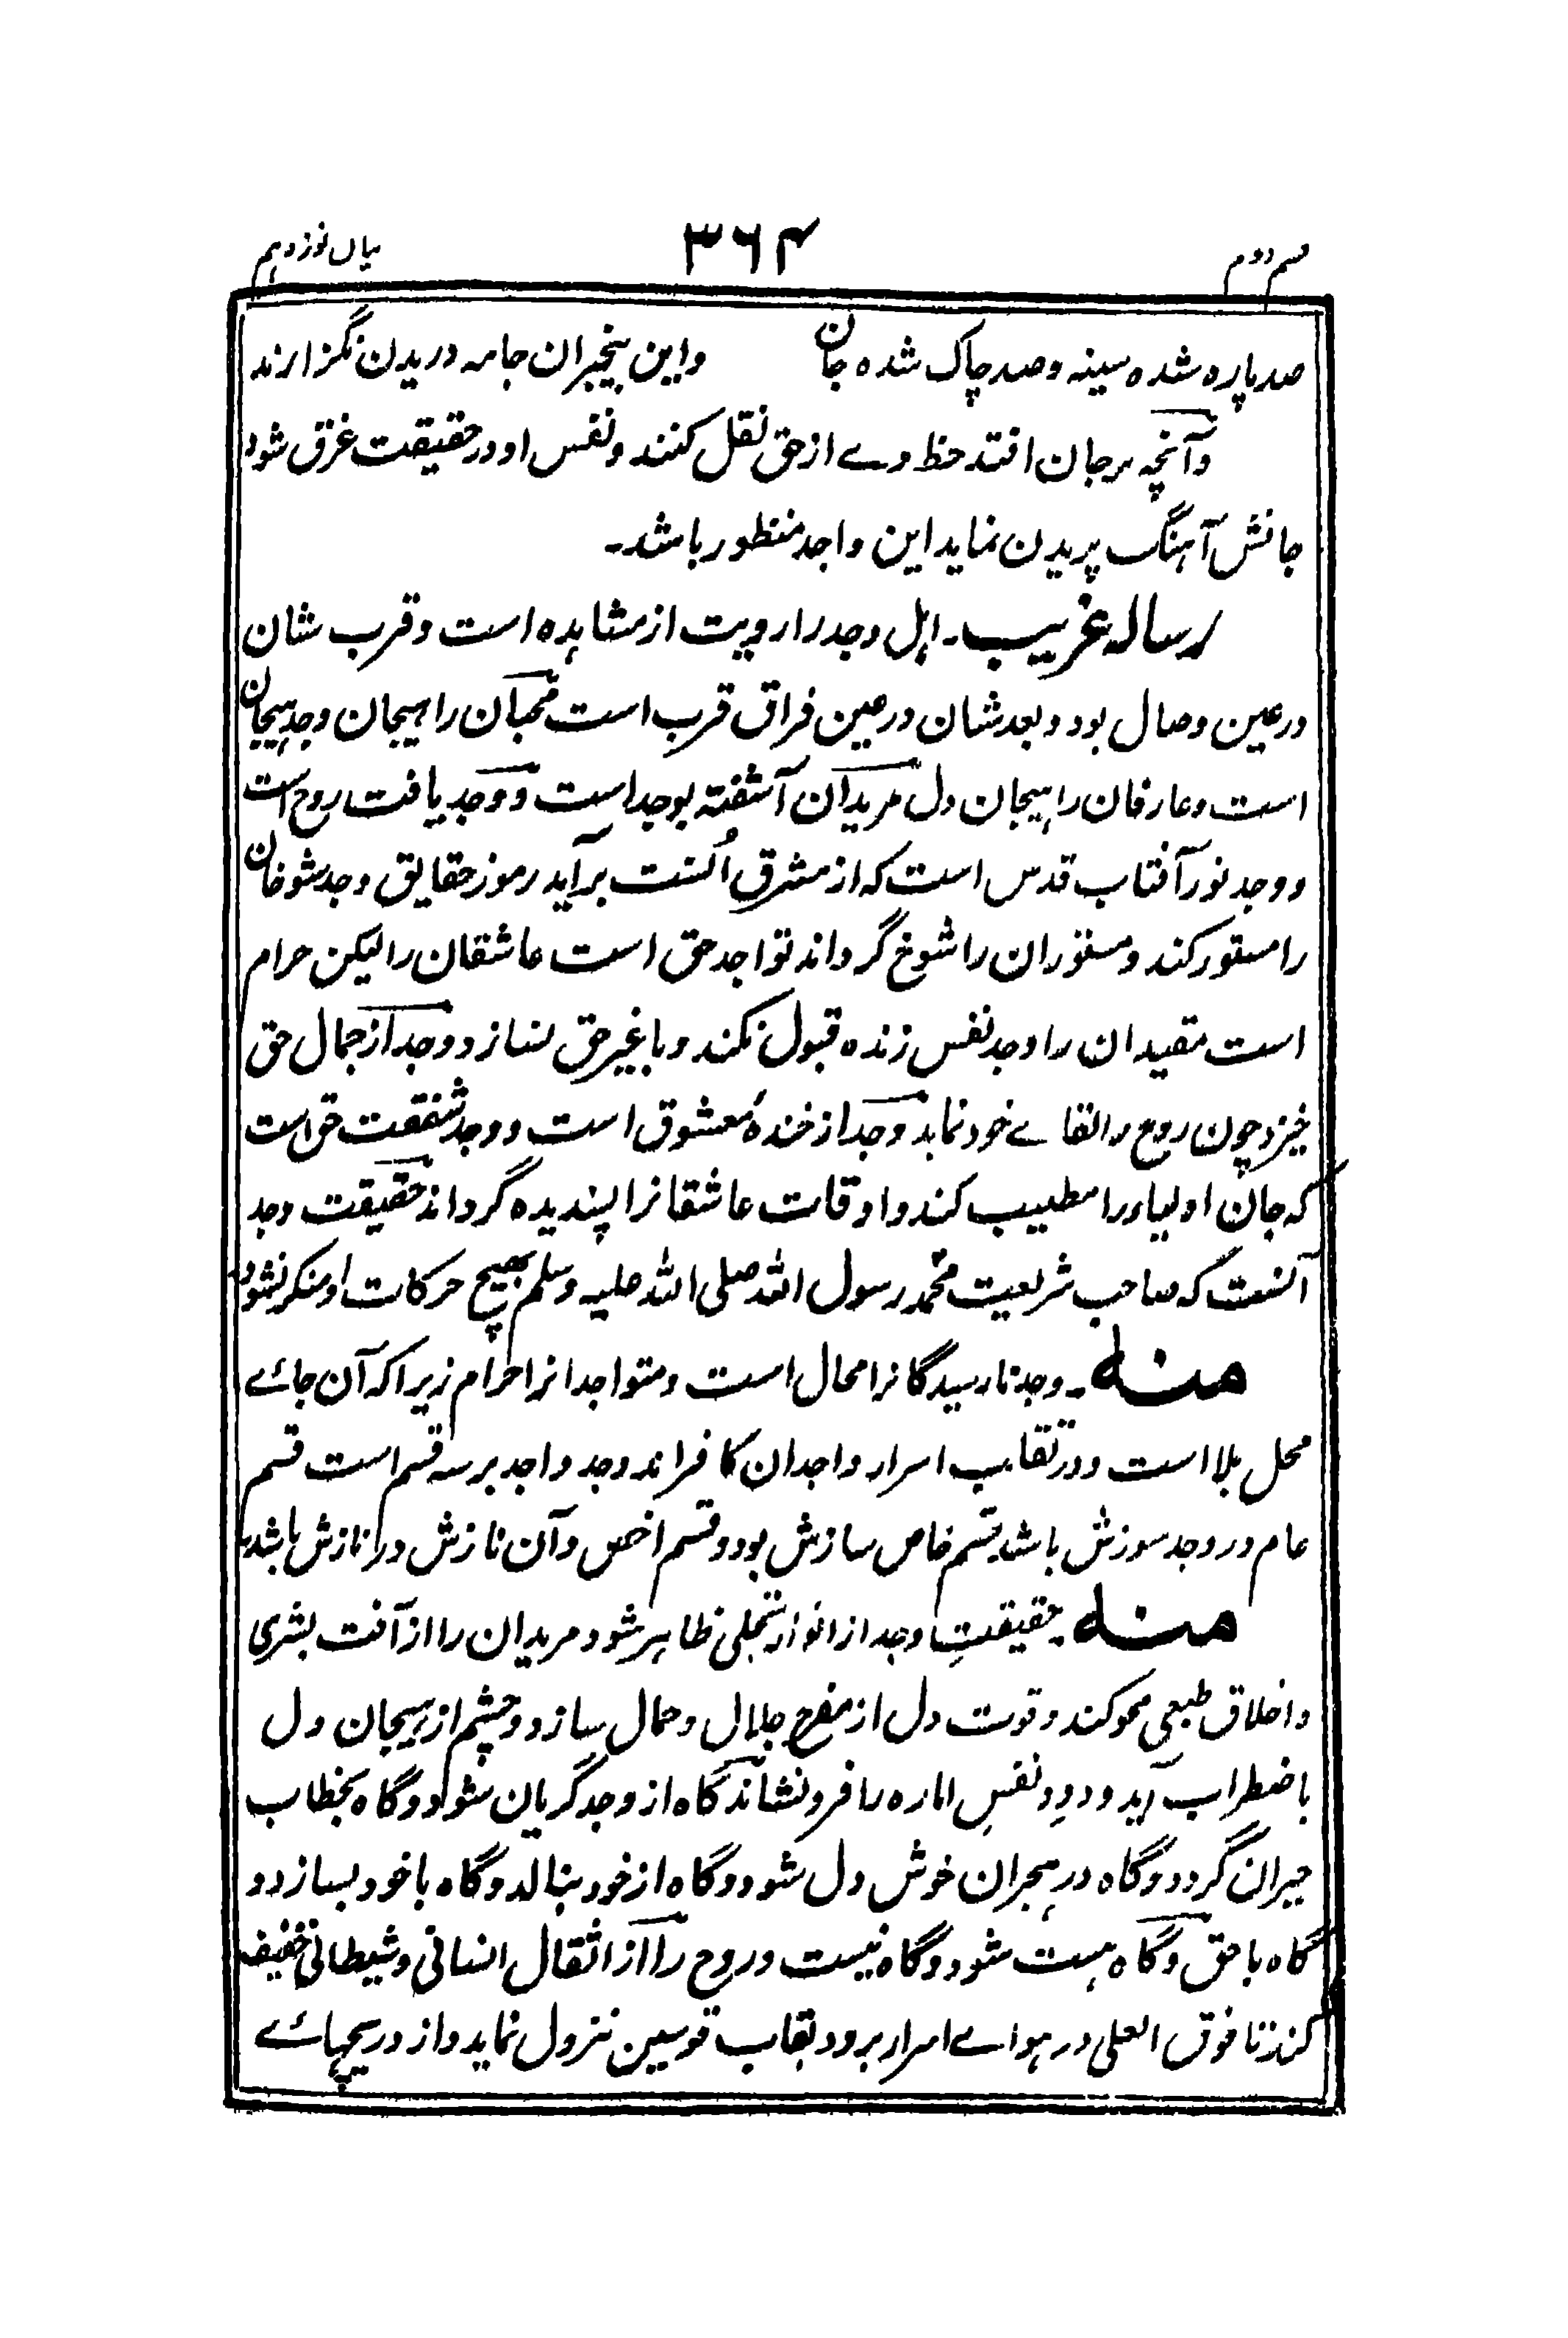 قسم دوم ۳۶۴ بیان نوزدهم
صد پاره شده سینه و صد چاک شده جان واین بیخبران جامه دریدن نگزارند
وآنچه بر جان افتد حظ وے از حق نقل کنند و نفس او در حقیقت غرق شود
جانش آہنگ پریدن نماید این واجد منظور باشد۔
رساله غریب۔ اہل وجد را رویت از مشاہدہ است و قرب شان
در عین وصال بود و بعد شان در عین فراق قرب است محبان را ہیجان وجد ہیجان
است و عارفان را ہیجان دل مریدان آشفتہ بوجد است و وجد یافت روح است
و وجد نور آفتاب قدس است کہ از مشرق اُلست برآید رموز حقایق وجد شوخان
را مستور کند و مستوران را شوخ گرداند تواجد حق است عاشقان را لیکن حرام
است مقیدان را وجد نفس زندہ قبول نکند و با غیر حق نسازد و وجد از جمال حق
خیزد چون روح را لقاے خود نماید وجد از خندۂ معشوق است و وجد شفقت حق است
کہ جان اولیاء را مطیب کند و اوقات عاشقانرا پسندیدہ گرداند حقیقت وجد
آنست کہ صاحب شریعت محمد رسول اللہ صلی اللہ علیہ وسلم بہیچ حرکات او منکر نشود
منه۔ وجد نارسیدگانرا محال است و متواجدانرا حرام زیرا کہ آن جائے
محل بلا است و در تقالیب اسرار واجدان کافراند وجد واجد بر سہ قسم است قسم
عام در وجد سوزش باشد قسم خاص سازش بود و قسم اخص و آن نازش در نازش باشد
منه حقیقتِ وجد از انوار تجلی ظاہر شود مریدان را از آفت بشری
و اخلاق طبعی محو کند و قوت دل از مفرح جلال و جمال سازد و چشم از ہیجان دل
باضطراب آید و دودِ نفسِ امارہ را فرونشاند گاہ از وجد گریان شود و گاہ بخطاب
حیران گردد و گاہ در ہجران خوش دل شود و گاہ از خود بنالد و گاہ با خود بسازد و
گاہ با حق و گاہ ہست شود و گاہ نیست و روح را از اثقال انسانی و شیطانی خفیف
کند تا فوق العلی در ہواے اسرار برود بقاب قوسین نزول نماید و از دریچہائے